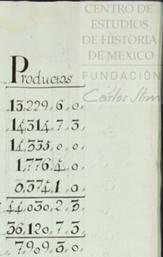 CENTRO DE
ESTUDIOS
DE HISTORIA
DE MEXICO
FUNDACIÓN
Carlos Slim
Productos
13,229,,6,,0,,
14,314,,7,,3,,
14,335,,0,,0,,
1,776,,4,,0,,
0,374,,1,,0,,
44,030,,2,,3,,
36,120,,7,,3,,
7,909,,3,,0,,